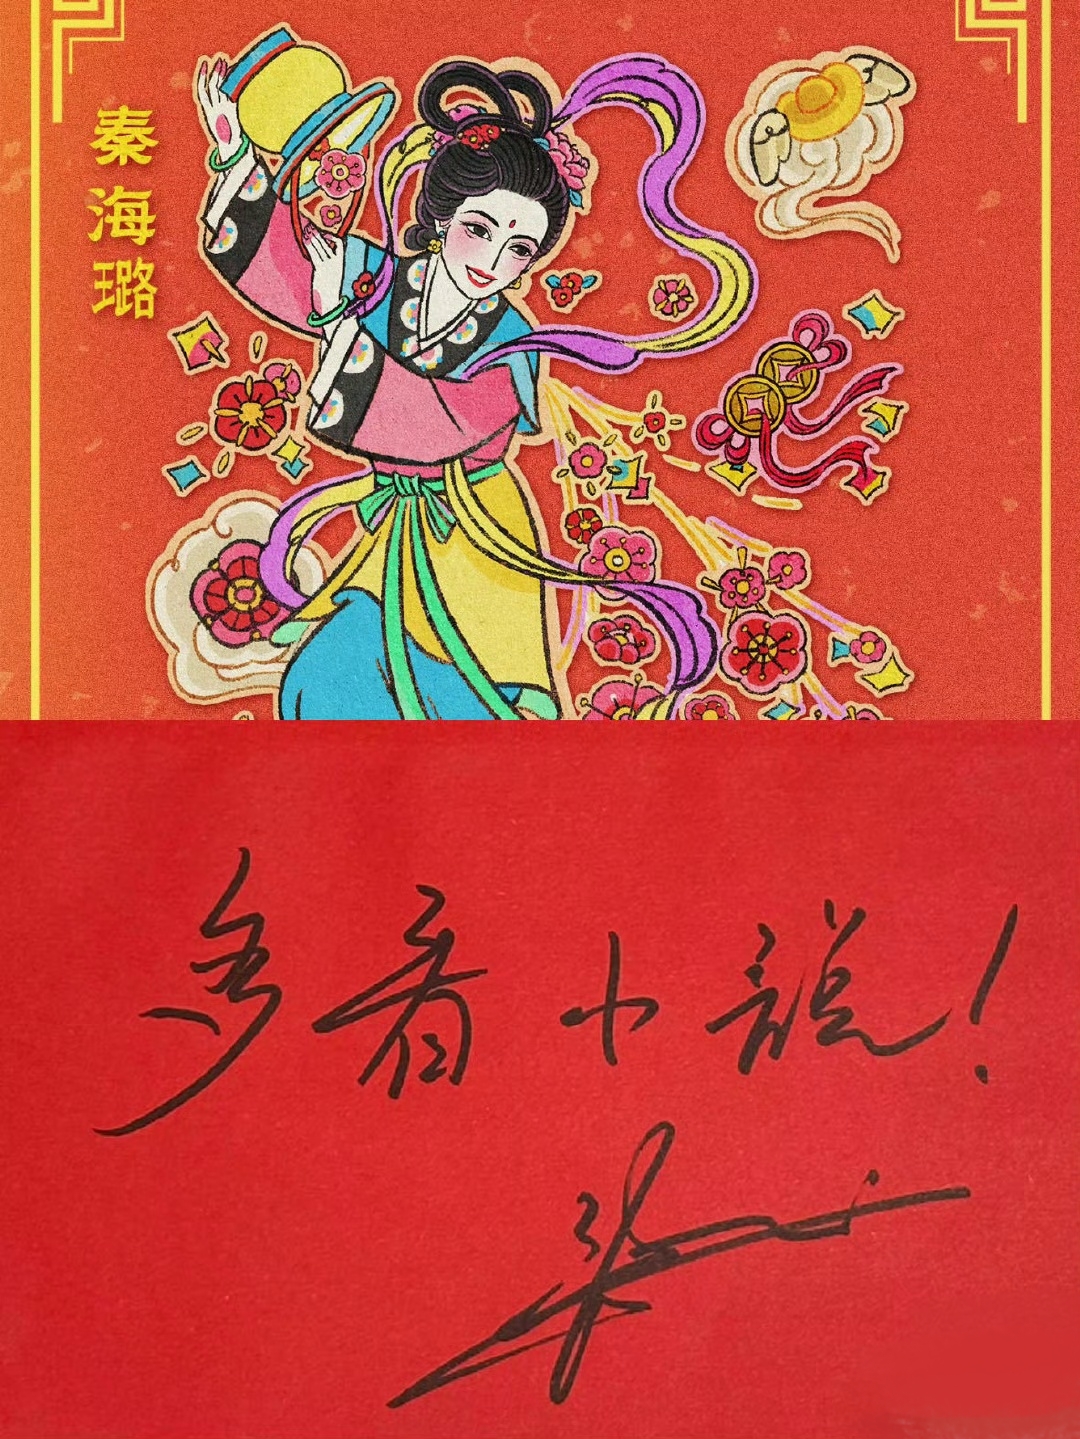 秦海璐
多看小说！